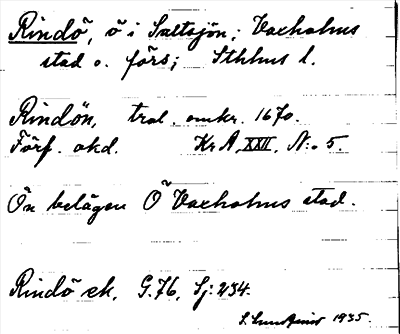 Rindö, ö i Saltsjön; Vaxholms
stad o. förs; Sthlms l.
Rindön, tral. omkr. 1670.
Förf. okd. KrA, XXII, N:o 5.
Ön belägen Ö Vaxholms stad.
Rindö ek, G.76, Sj: 234.
1935.